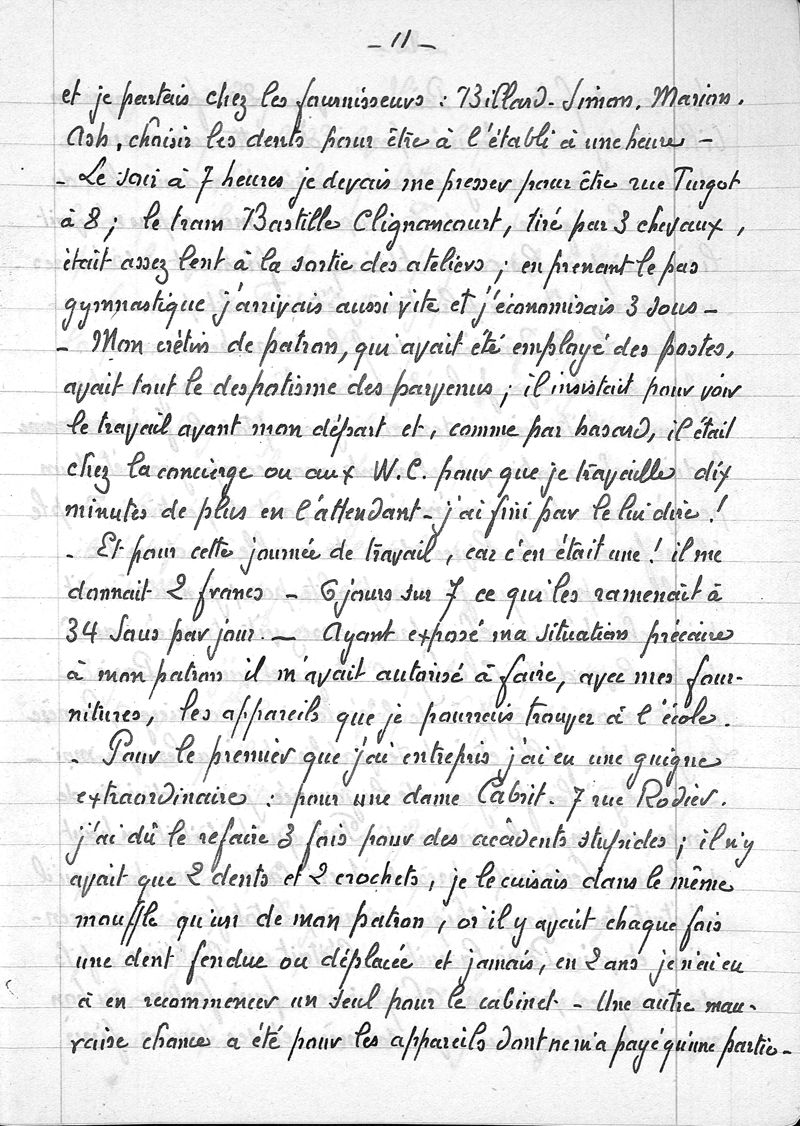 - 11 -
et je partais chez les fournisseurs : Billard - Simon. Marion.
Ash, choisir les dents pour être à l'établi à une heure -
- Le soir à 7 heures je devais me presser pour être rue Turgot
à 8 ; le tram Bastille Clignancourt, tiré par 3 chevaux,
était assez lent à la sortie des ateliers ; en prenant le pas
gymnastique j'arrivais aussi vite et j'économisais 3 sous -
- Mon crétin de patron, qui avait été employé des postes,
avait tout le despotisme des parvenus ; il insistait pour voir
le travail avant mon départ et, comme par hasard, il était
chez la concierge ou aux W.C. pour que je travaille dix
minutes de plus en l'attendant - j'ai fini par le lui dire !
- Et pour cette journée de travail, car c'en était une ! il me
donnait 2 francs - 6 jours sur 7 ce qui les ramenait à
34 sous par jour. - Ayant exposé ma situation précaire
à mon patron il m'avait autorisé à faire, avec mes four-
nitures, les appareils que je pourrais trouver à l'école.
- Pour le premier que j'ai entrepris j'ai eu une guigne
extraordinaire : pour une dame Cabrit. 7 rue Rodier.
j'ai dû le refaire 3 fois pour des accidents stupides ; il n'y
avait que 2 dents et 2 crochets, je le cuisais dans le même
mouffle qu'un de mon patron, or il y avait chaque fois
une dent fendue ou déplacée et jamais, en 2 ans je n'ai eu
à en recommencer un seul pour le cabinet - Une autre mau-
vaise chance a été pour les appareils dont ne m'a payé qu'une partie -